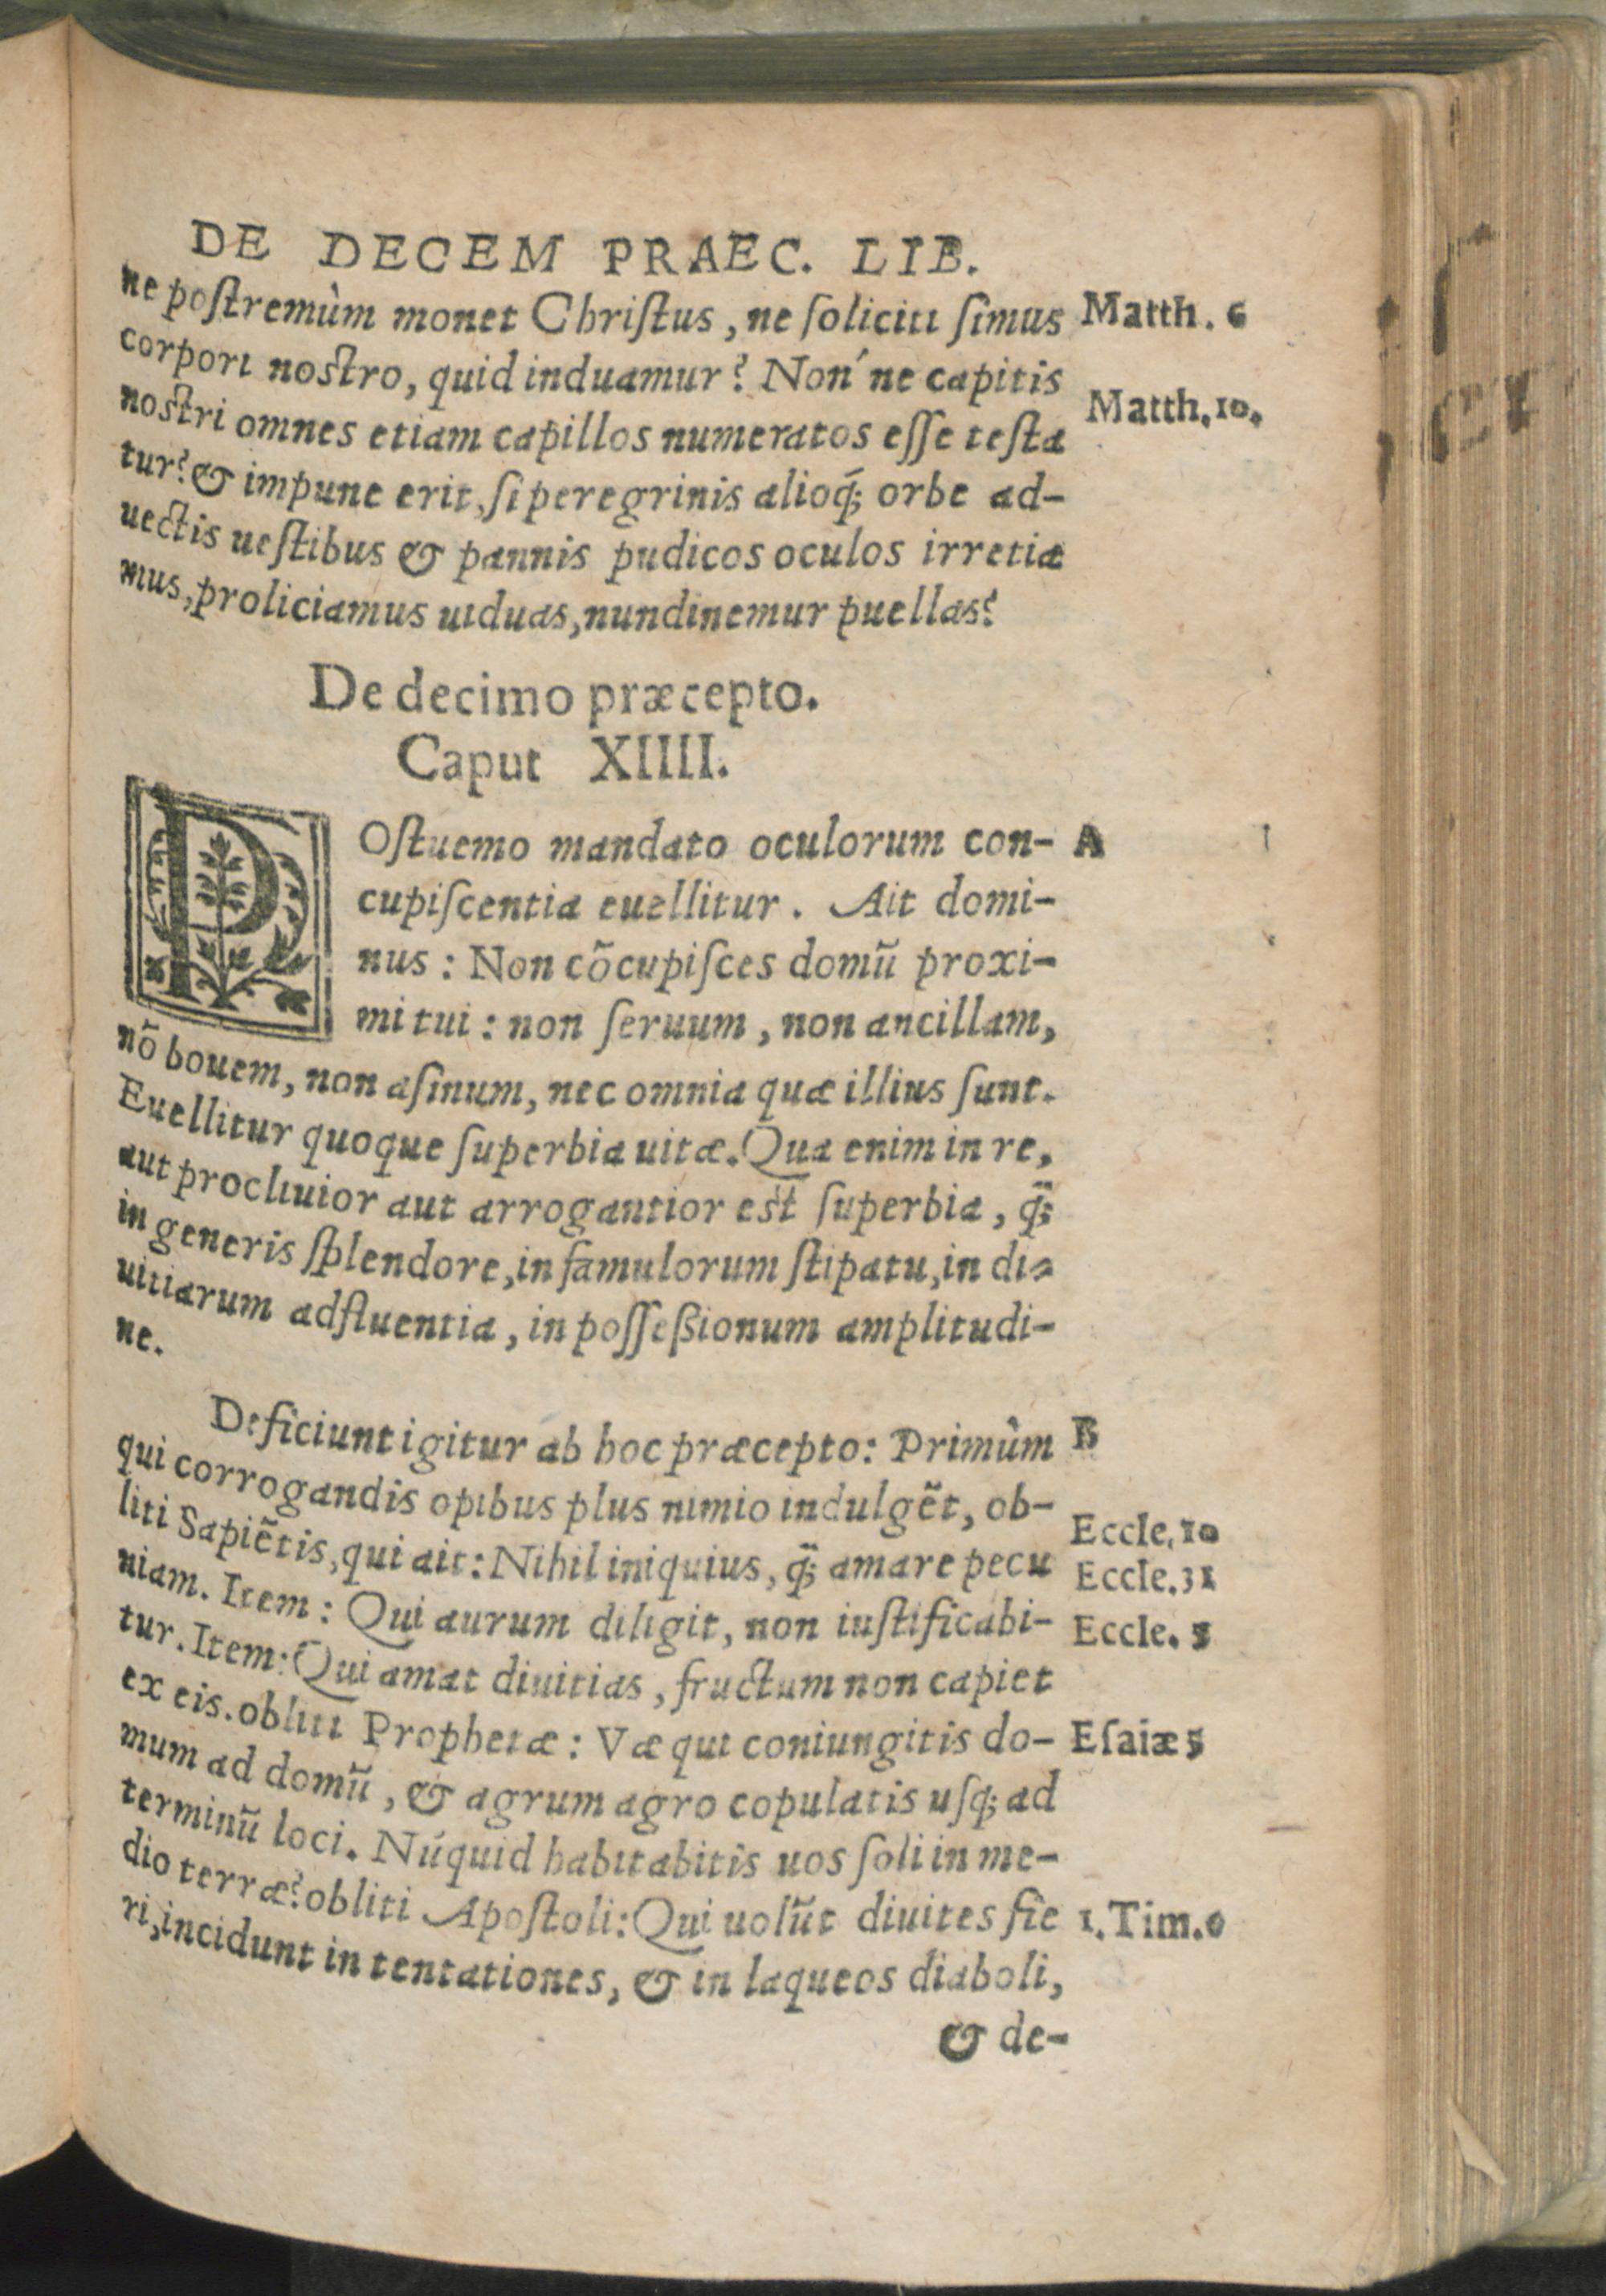 DE DECEM PRAEC. LIB.
ne postremùm monet Christus, ne soliciti simus Matth. 6
corpori nostro, quid induamur? Non´ne capitis
nostri omnes etiam capillos numeratos esse testa Matth.10.
tur? & impune erit, si peregrinis alioq́; orbe ad-
uectis uestibus & pannis pudicos oculos irretia
mus, proliciamus uiduas, nundinemur puellas?
De decimo præcepto.
Caput XIIII.
POstremo mandato oculorum con- A
cupiscentia euellitur. Ait domi-
nus: Non cõcupisces domũ proxi-
mi tui: non seruum, non ancillam,
nõ bouem, non asinum, nec omnia quæ illius sunt.
Euellitur quoque superbia uitæ. Qua enim in re,
aut procliuior aut arrogantior est superbia, q̃;
in generis splendore, in famulorum stipatu, in di-
uitiarum adfluentia, in possessionum amplitudi-
ne.
Deficiunt igitur ab hoc præcepto: Primûm B
qui corrogandis opibus plus nimio indulgẽt, ob-
liti Sapiẽtis, qui ait: Nihil iniquius, q̃; amare pecu Eccle.10
niam. Item: Qui aurum diligit, non iustificabi- Eccle.31
tur. Item: Qui amat diuitias, fructum non capiet Eccle. 5
ex eis. obliti Prophetæ: Væ qui coniungitis do- Esaiæ 5
mum ad domũ, & agrum agro copulatis usq; ad
terminũ loci. Núquid habitabitis uos soli in me-
dio terræ? obliti Apostoli: Qui uolũt diuites fie 1. Tim.6
ri, incidunt in tentationes, & in laqueos diaboli,
& de-